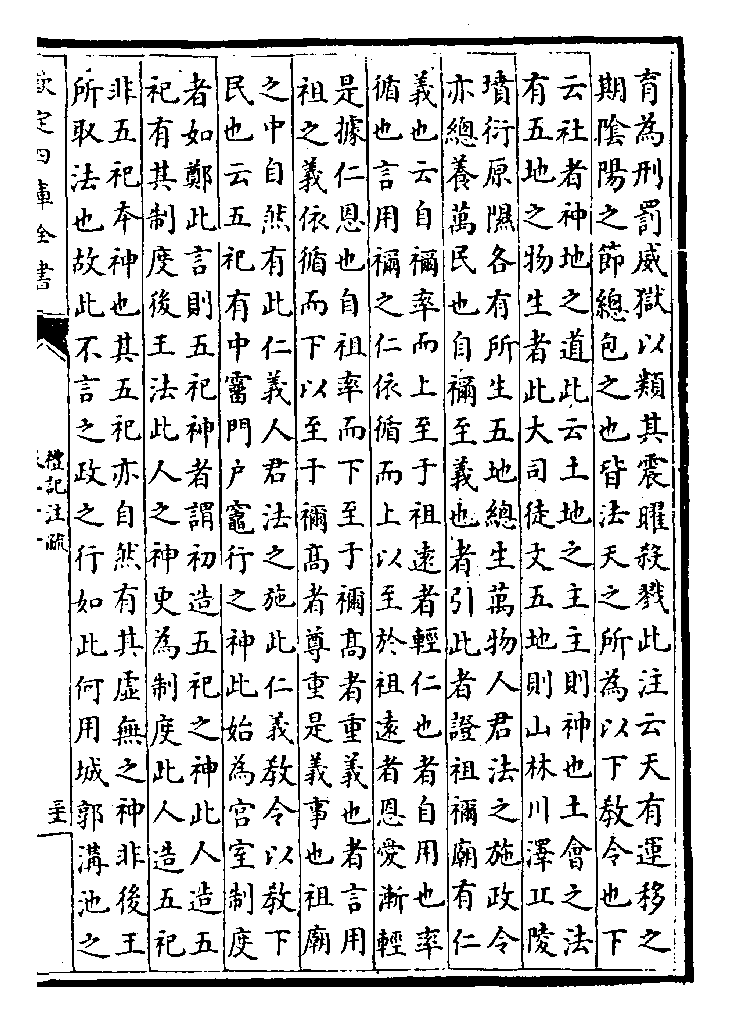 育為刑罰威獄以類其震曜殺戮此注云天有運移之
期隂陽之節總包之也皆法天之所為以下教令也下
云社者神地之道此云土地之主主則神也土會之法
有五地之物生者此大司徒文五地則山林川澤丘陵
墳衍原隰各有所生五地總生萬物人君法之施政令
亦總養萬民也自禰至義也者引此者證祖禰廟有仁
義也云自禰率而上至于祖逺者輕仁也者自用也率
循也言用禰之仁依循而上以至於祖逺者恩愛漸輕
是據仁恩也自祖率而下至于禰髙者重義也者言用
祖之義依循而下以至于禰髙者尊重是義事也祖廟
之中自然有此仁義人君法之施此仁義教令以教下
民也云五祀有中霤門户竈行之神此始為宫室制度
者如鄭此言則五祀神者謂初造五祀之神此人造五
祀有其制度後王法此人之神更為制度此人造五祀
非五祀本神也其五祀亦自然有其虚無之神非後王
所取法也故此不言之政之行如此何用城郭溝池之
欽定四庫全書
禮記注疏